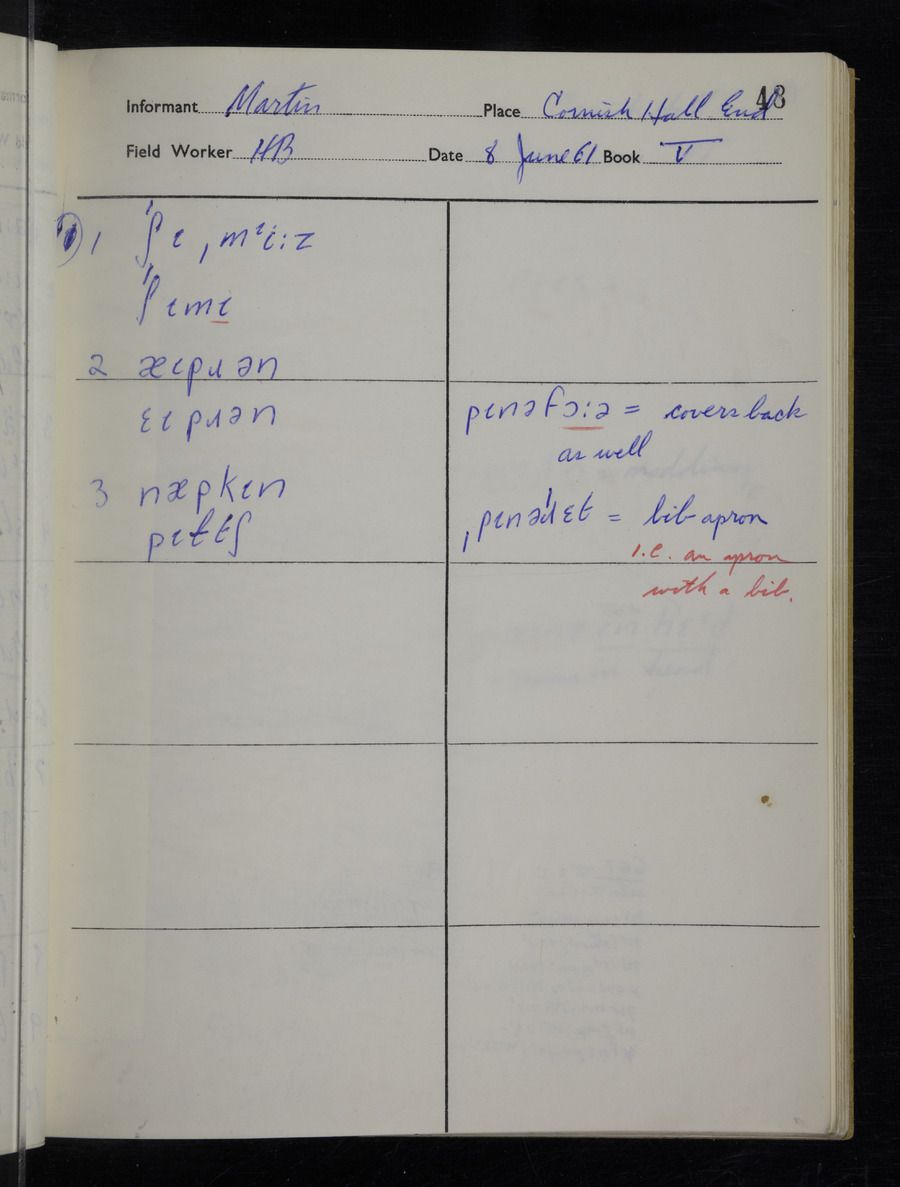 48
Informant Martin Place Cornish Hall End
Field Worker HB Date 8 June 61 Book V
1 ˈʃɩ ˌmᶦiːz
ˈʃɩmɩ
2 æɩpɹən
ɛɩpɹən
3 næpkɩn
pɩttʃ
pɩnəfɔːə = covers back
as well
ˌpɩnəˈɹɛt = bib apron
i.e. an apron
with a bib.